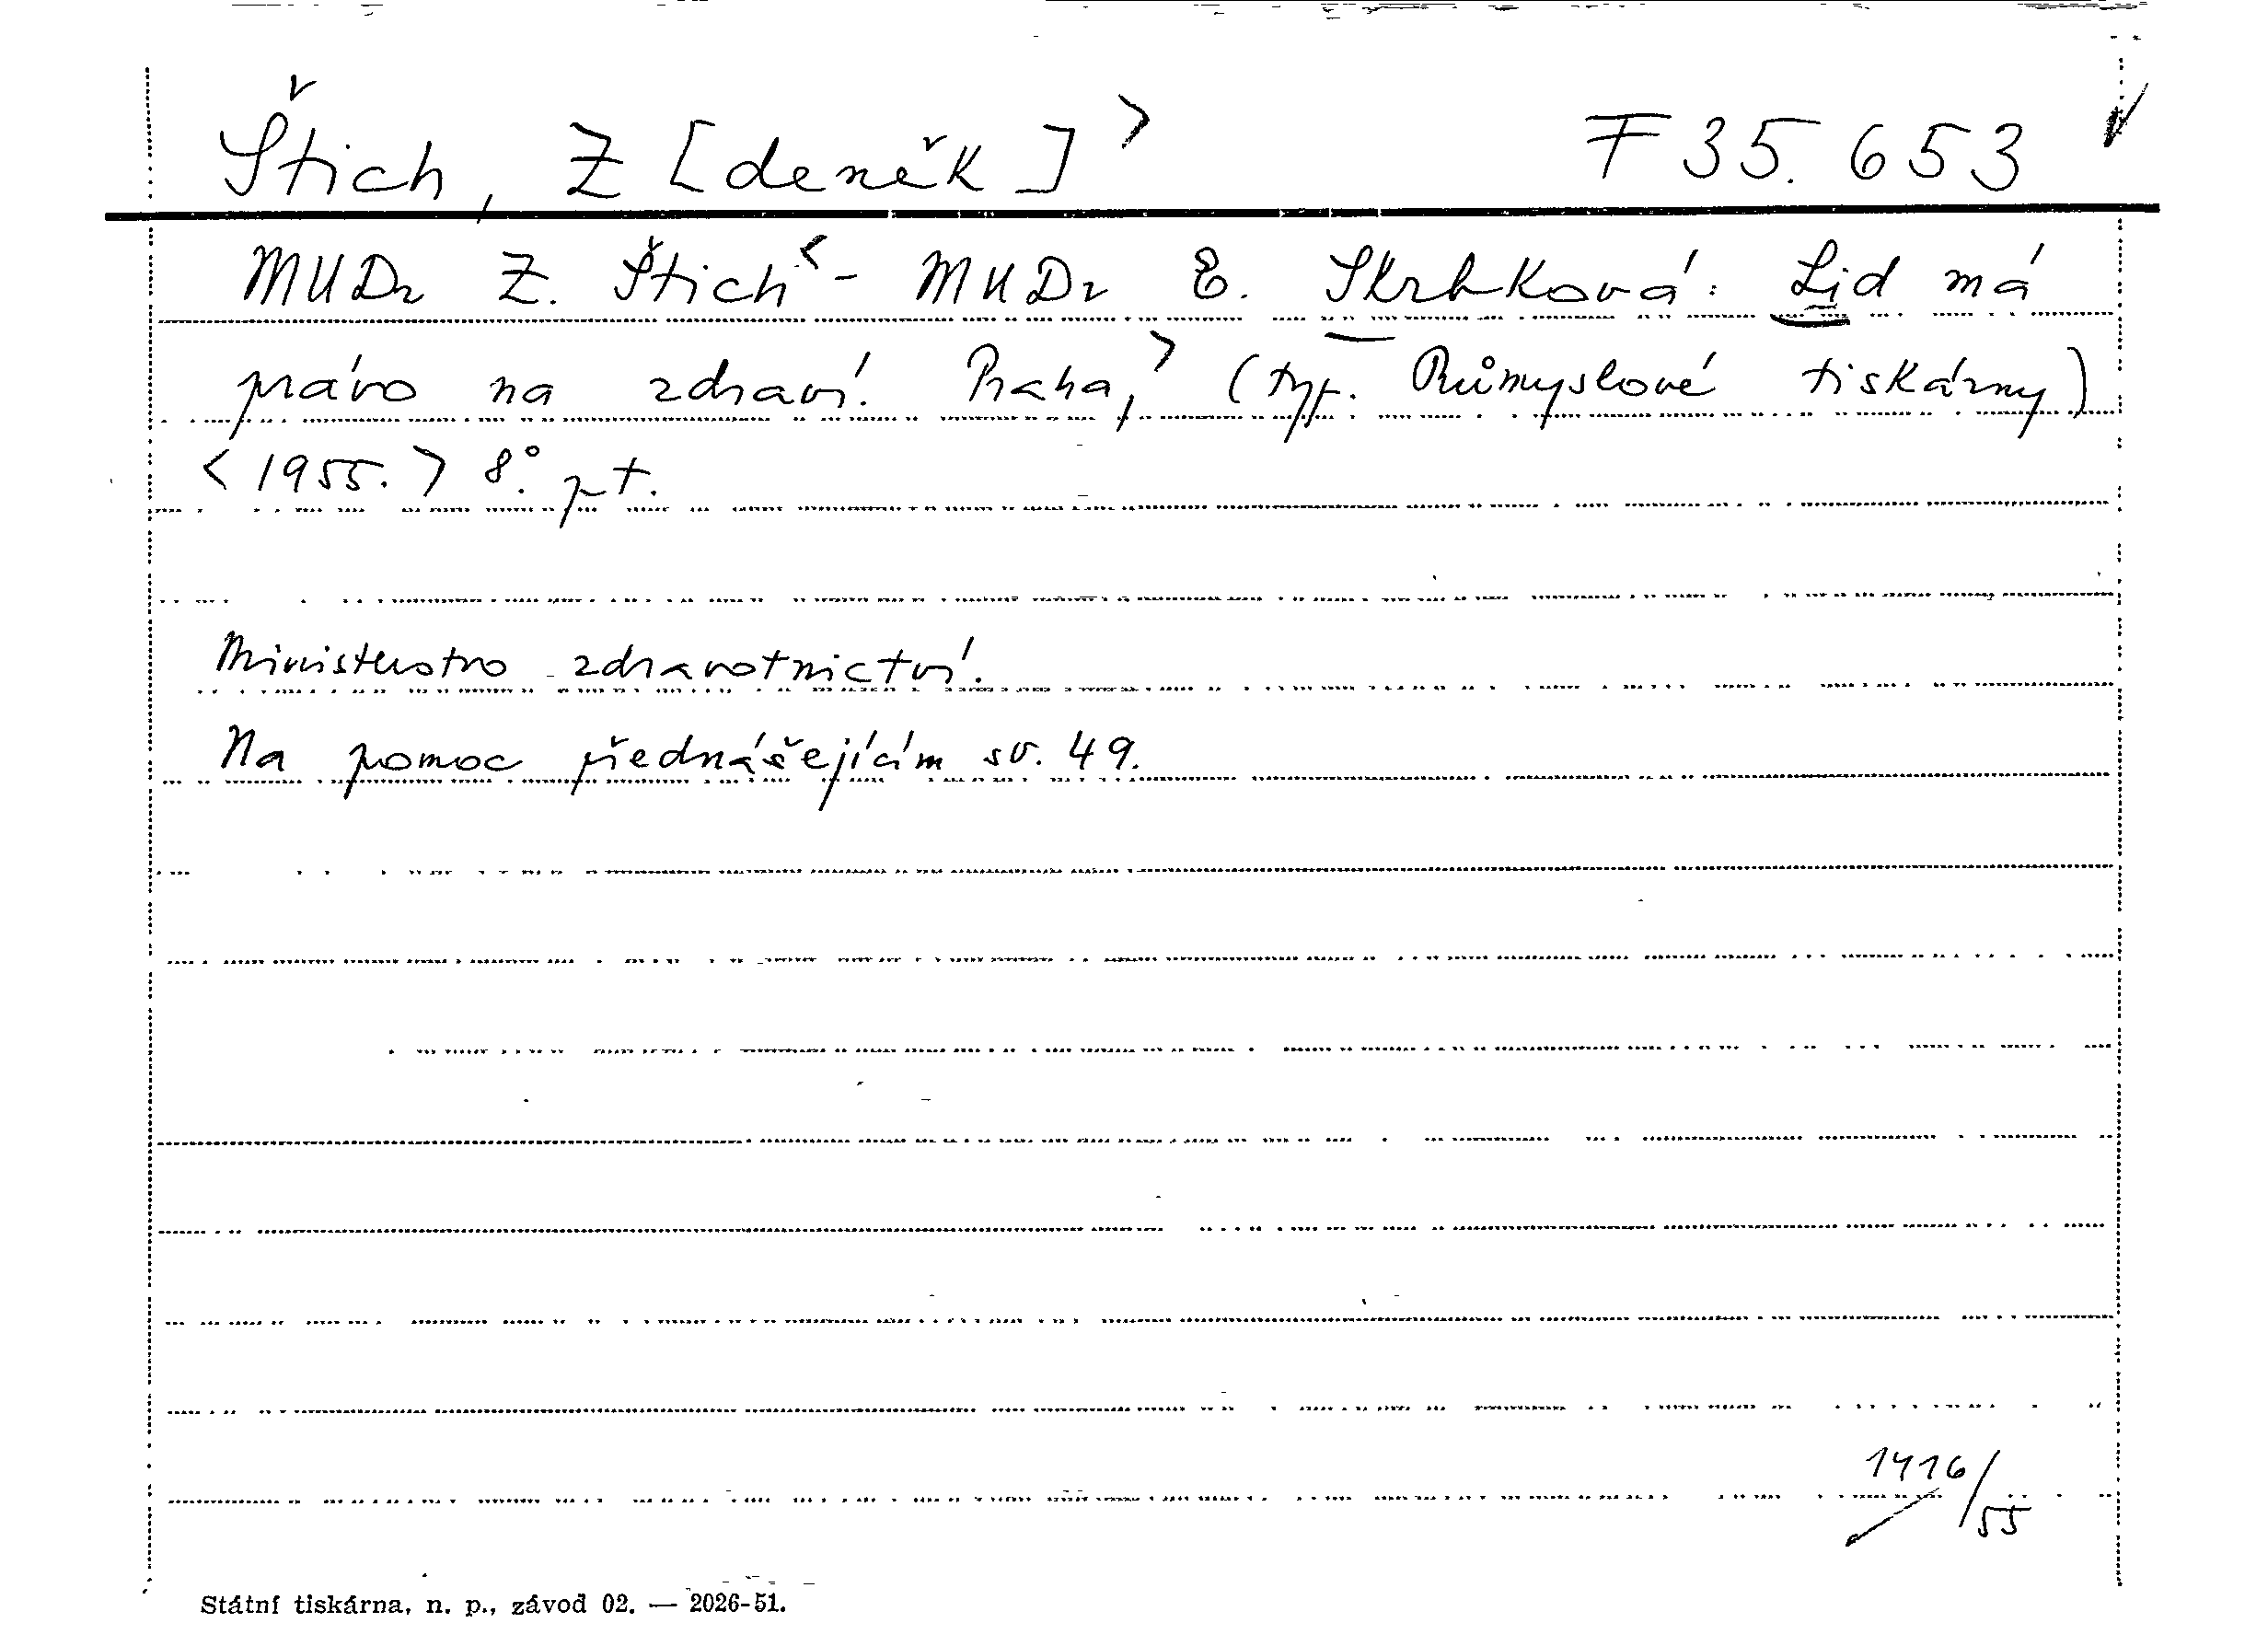 Štich, Z [deněk] > F 35.653
MUDr Z. Štich < - MUDr E. Skrbková: Lid má
právo na zdraví. Praha, > (typ. Průmyslové tiskárny)
<1955.> 8°. pt.
Ministerstvo zdravotnictví.
Na pomoc přednášejícím sv. 49.
1416/55
Státní tiskárna, n. p., závod 02. — 2026-51.